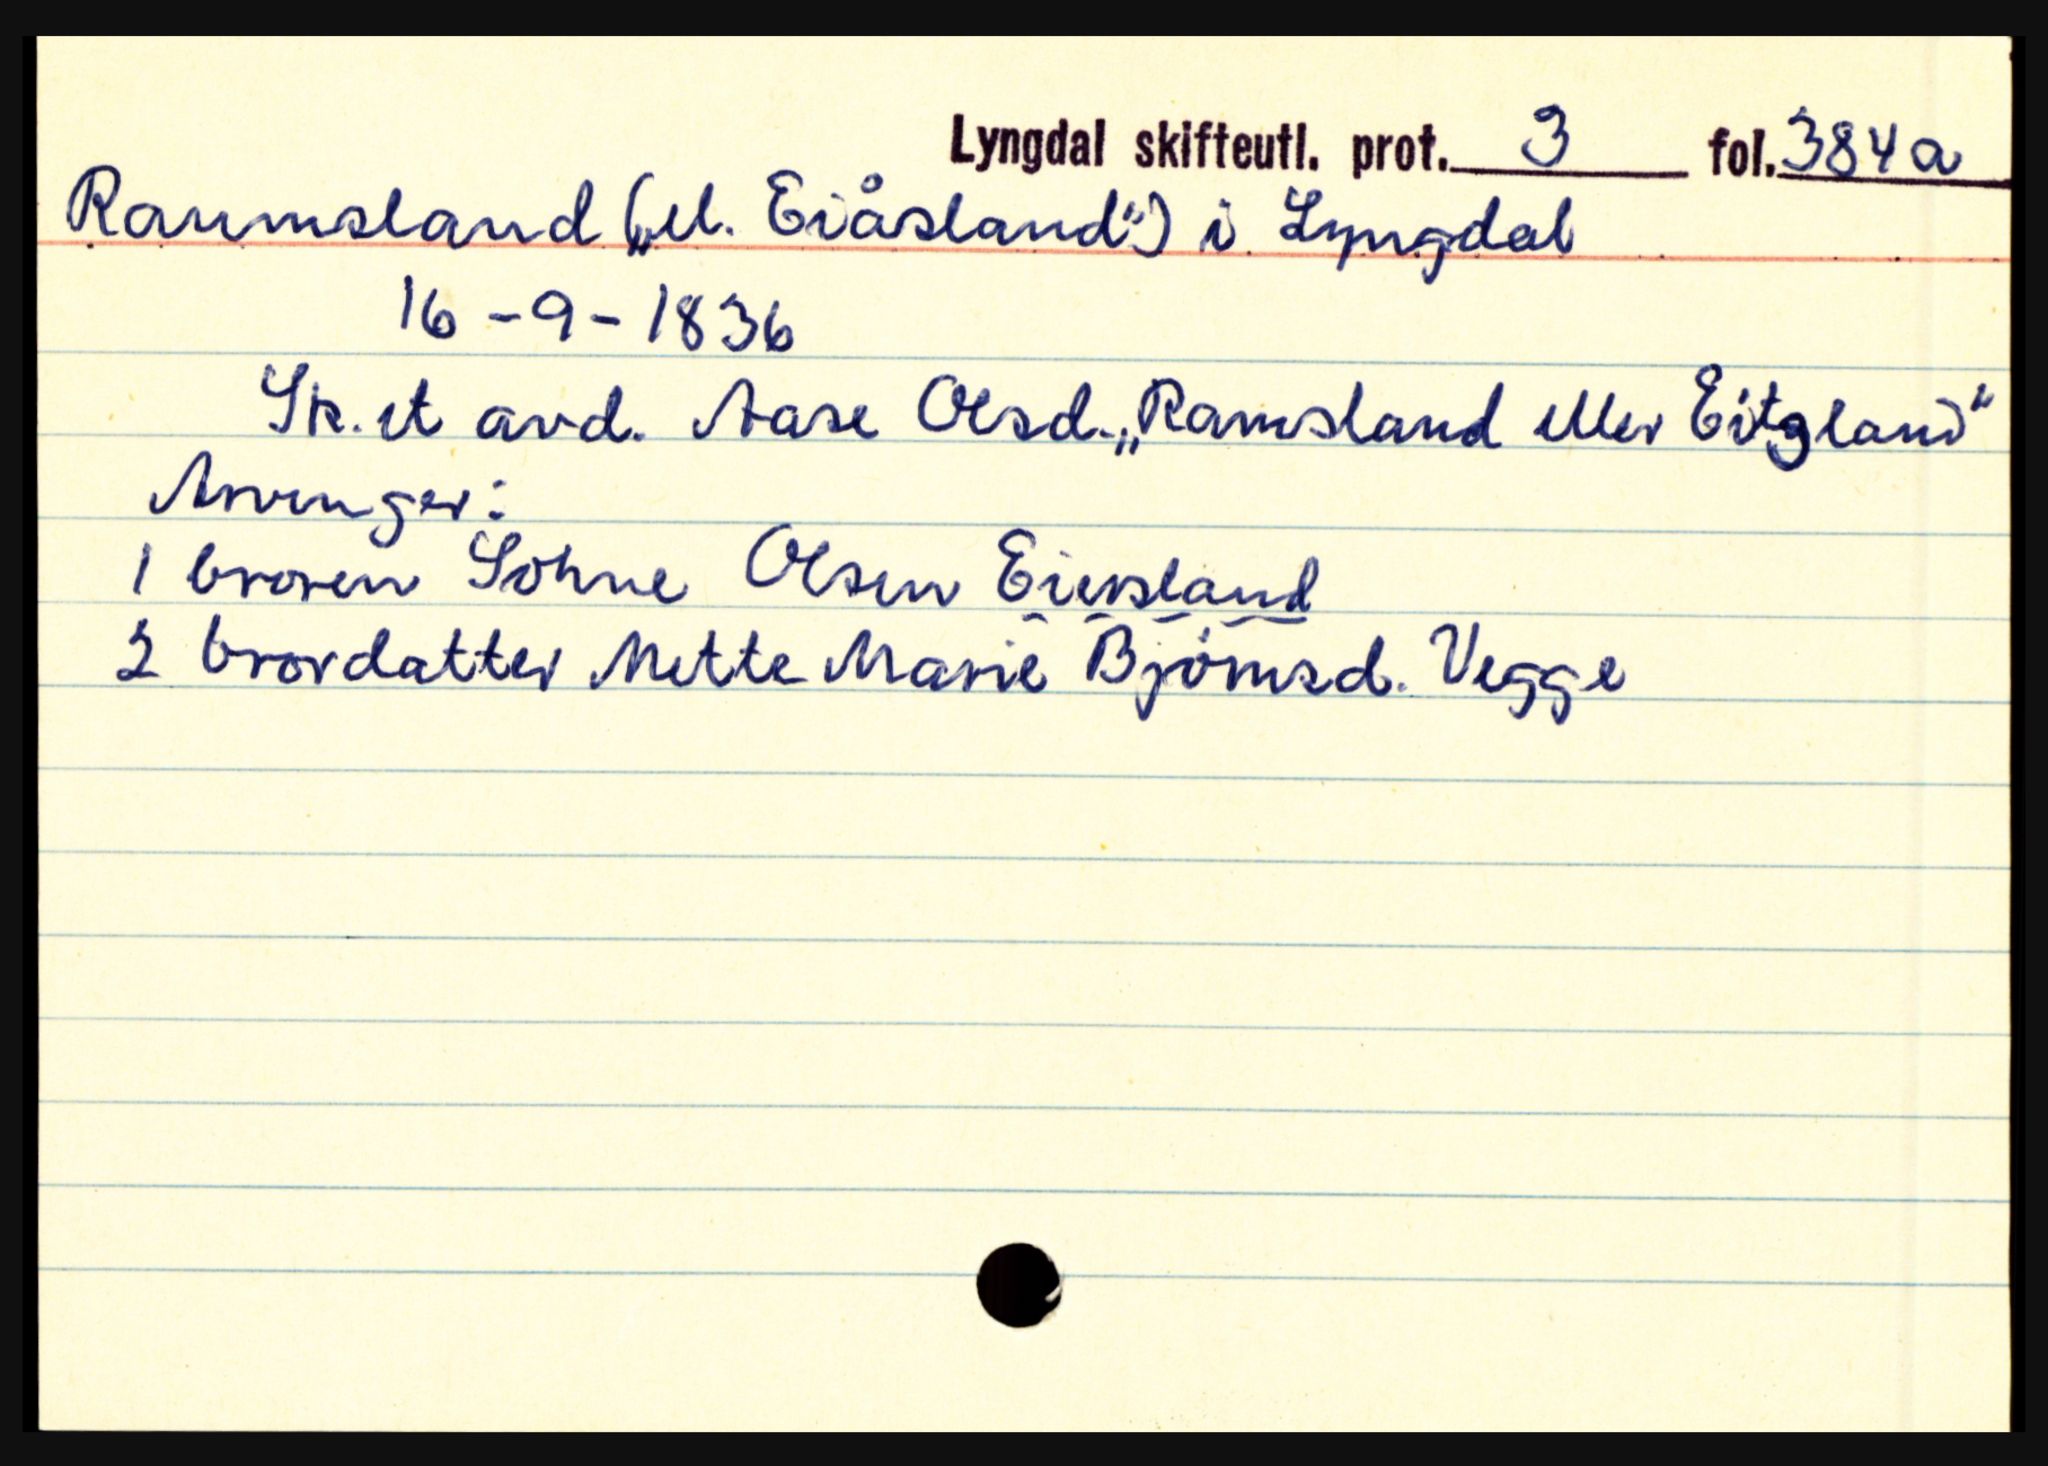 Lyngdal skifteutl. prot. 3 fol. 384a
Raumsland („el. Eiåsland“) i Lyngdal
16-9-1836
Sk. et avd. Aase Olsd. „Ramsland eller Eitzland“
Arvinger:
1 broren Søhne Olsen Eiersland
2 brordatter Mette Marie Bjørnsd. Vegge